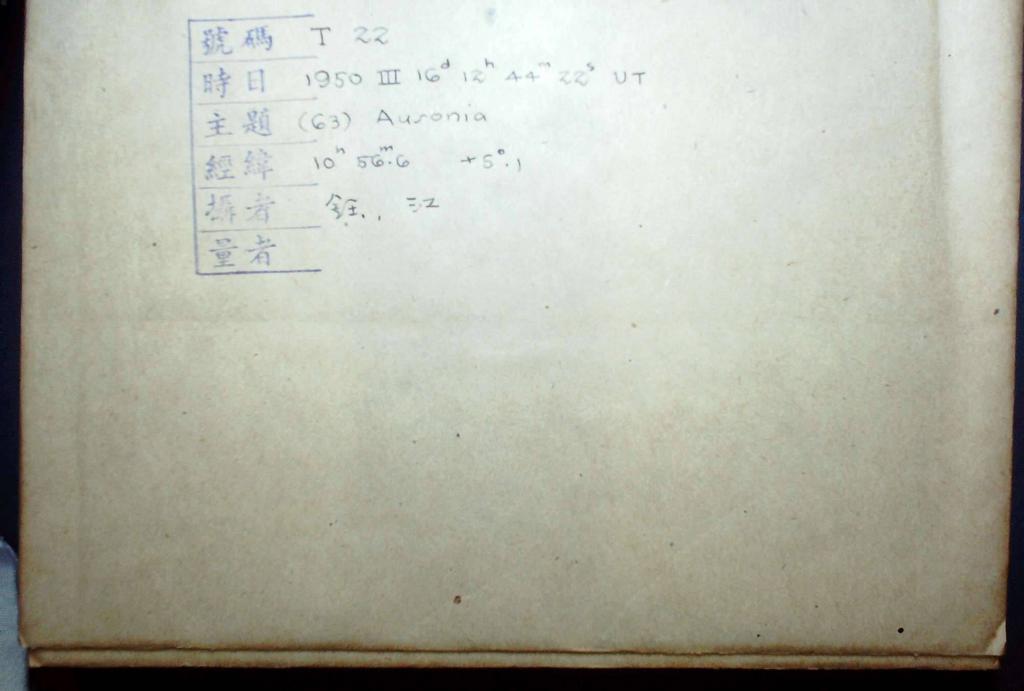 號碼 T 22
時日 1950 III 16ᵈ 12ʰ 44ᵐ 22ˢ UT
主題 (63) Ausonia
經緯 10ʰ 56ᵐ.6 +5°.1
攝者 鈺., 江
量者